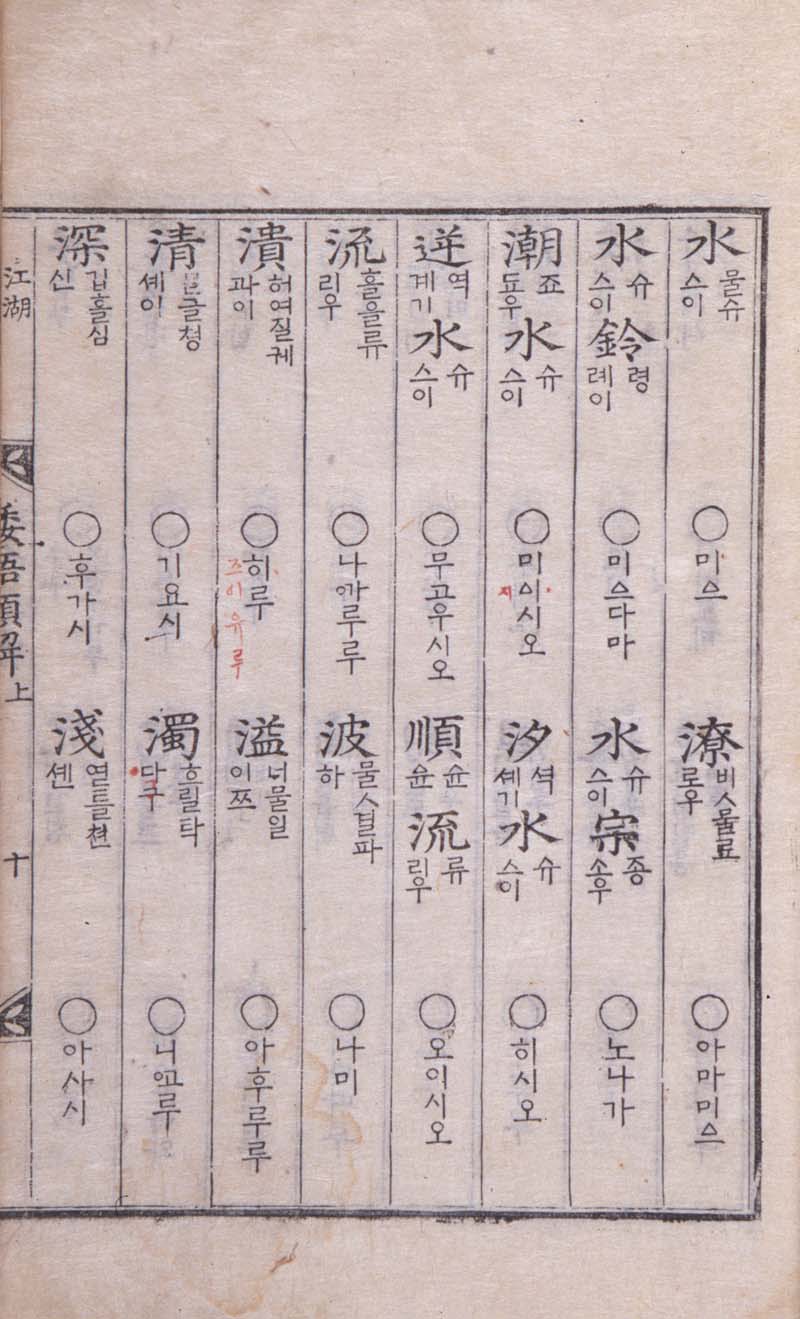 水 물슈 스이 ○미ᅀᅳ
潦 비ㅅ물료 로우 ○아마미ᅀᅳ
水 슈 스이 鈴 령 례이 ○미ᅀᅳ다마
水 슈 스이 宗 종 소우 ○노나가
潮 죠 됴우 水 슈 스이 ○미이시오 지
汐 셕 셰기 水 슈 스이 ○히시오
逆 역 계기 水 슈 스이 ○무고우시오
順 슌 ᅀᅲᆫ 流 류 리우 ○오이시오
流 흘을류 리우 ○나ᅁᅡ루루
波 물ㅅ결파 하 ○나미
潰 허여질궤 과이 ○히루 즈이유루
溢 너물일 이쯔 ○아후루루
清 글쳥 셰이 ○기요시
濁 흐릴탁 다구 ○니ᅁᅩ루
深 깁흘심 신 ○후가시
淺 엿틀쳔 셴 ○아사시
江湖 倭語類解 上 十